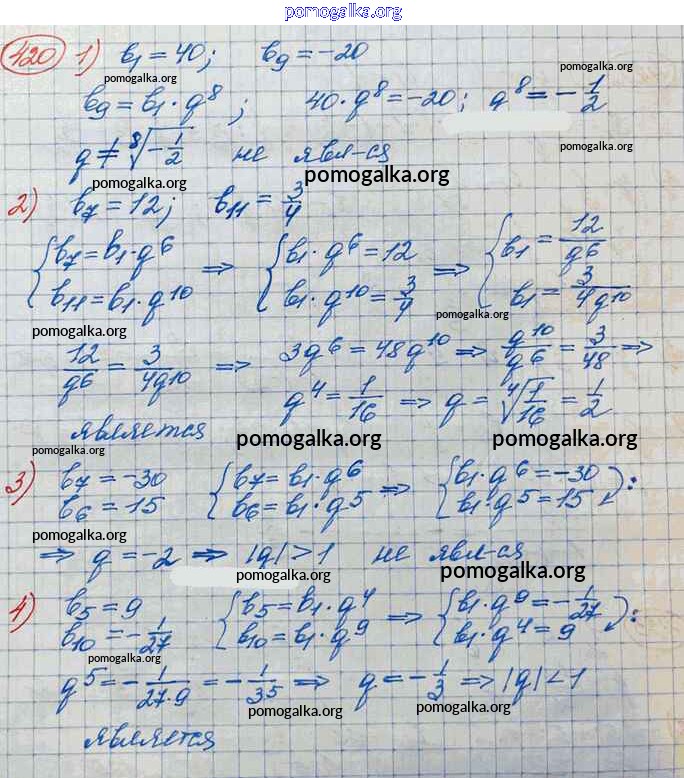 pomogalka.org
420 1) b₁ = 40; b₉ = -20
pomogalka.org pomogalka.org
b₉ = b₁ · q⁸; 40 · q⁸ = -20; q⁸ = -1/2
pomogalka.org
q ≠ ⁸√(-1/2) не явл-ся
pomogalka.org pomogalka.org
2) b₇ = 12; b₁₁ = 3/4
{ b₇ = b₁ · q⁶ ⇒ { b₁ · q⁶ = 12 ⇒ { b₁ = 12/q⁶
b₁₁ = b₁ · q¹⁰ b₁ · q¹⁰ = 3/4 b₁ = 3/4q¹⁰
pomogalka.org pomogalka.org
12/q⁶ = 3/4q¹⁰ ⇒ 3q⁶ = 48q¹⁰ ⇒ q¹⁰/q⁶ = 3/48 ⇒
q⁴ = 1/16 ⇒ q = ⁴√(1/16) = 1/2
является
pomogalka.org pomogalka.org pomogalka.org
3) b₇ = -30 { b₇ = b₁ · q⁶ ⇒ { b₁ · q⁶ = -30 ) :
b₆ = 15 b₆ = b₁ · q⁵ b₁ · q⁵ = 15
pomogalka.org
⇒ q = -2 ⇒ |q| > 1 не явл-ся
pomogalka.org pomogalka.org
4) b₅ = 9 { b₅ = b₁ · q⁴ ⇒ { b₁ · q⁹ = -1/27 ) :
b₁₀ = -1/27 b₁₀ = b₁ · q⁹ b₁ · q⁴ = 9
pomogalka.org
q⁵ = -1/27·9 = -1/3⁵ ⇒ q = -1/3 ⇒ |q| < 1
pomogalka.org pomogalka.org
является